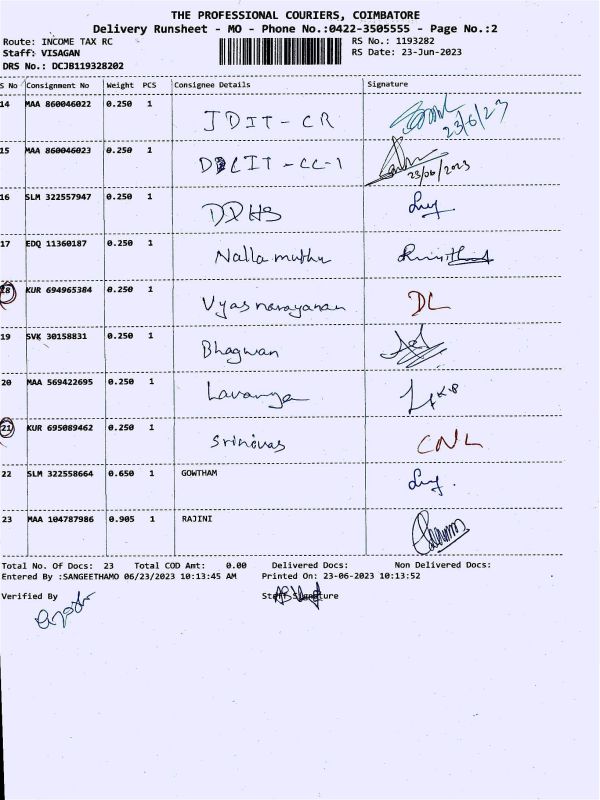 THE PROFESSIONAL COURIERS, COIMBATORE
Delivery Runsheet - MO - Phone No.:0422-3505555 - Page No.:2
Route: INCOME TAX RC RS No.: 1193282
Staff: VISAGAN RS Date: 23-Jun-2023
DRS No.: DCJB119328202
S No Consignment No Weight PCS Consignee Details Signature
14 MAA 860046022 0.250 1 JDIT - CR 23/6/23
15 MAA 860046023 0.250 1 DDCIT - CC-1 23/06/2023
16 SLM 322557947 0.250 1 DDHS
17 EDQ 11360187 0.250 1 Nalla muthu
18 KUR 694965384 0.250 1 Vyas narayanan DL
19 SVK 30158831 0.250 1 Bhagwan
20 MAA 569422695 0.250 1 Lavanya
21 KUR 695089462 0.250 1 Srinivas CNL
22 SLM 322558664 0.650 1 GOWTHAM
23 MAA 104787986 0.905 1 RAJINI
Total No. Of Docs: 23 Total COD Amt: 0.00 Delivered Docs: Non Delivered Docs:
Entered By :SANGEETHAMO 06/23/2023 10:13:45 AM Printed On: 23-06-2023 10:13:52
Verified By Staff Signature